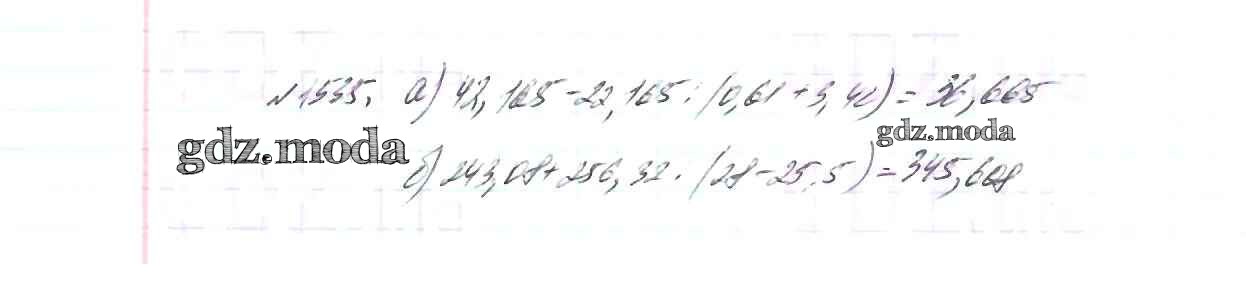 №1535. а) 42,165-22,165:(0,61+3,42)=36,665
gdz.moda
gdz.moda
б) 243,08+256,32:(28-25,5)=345,608